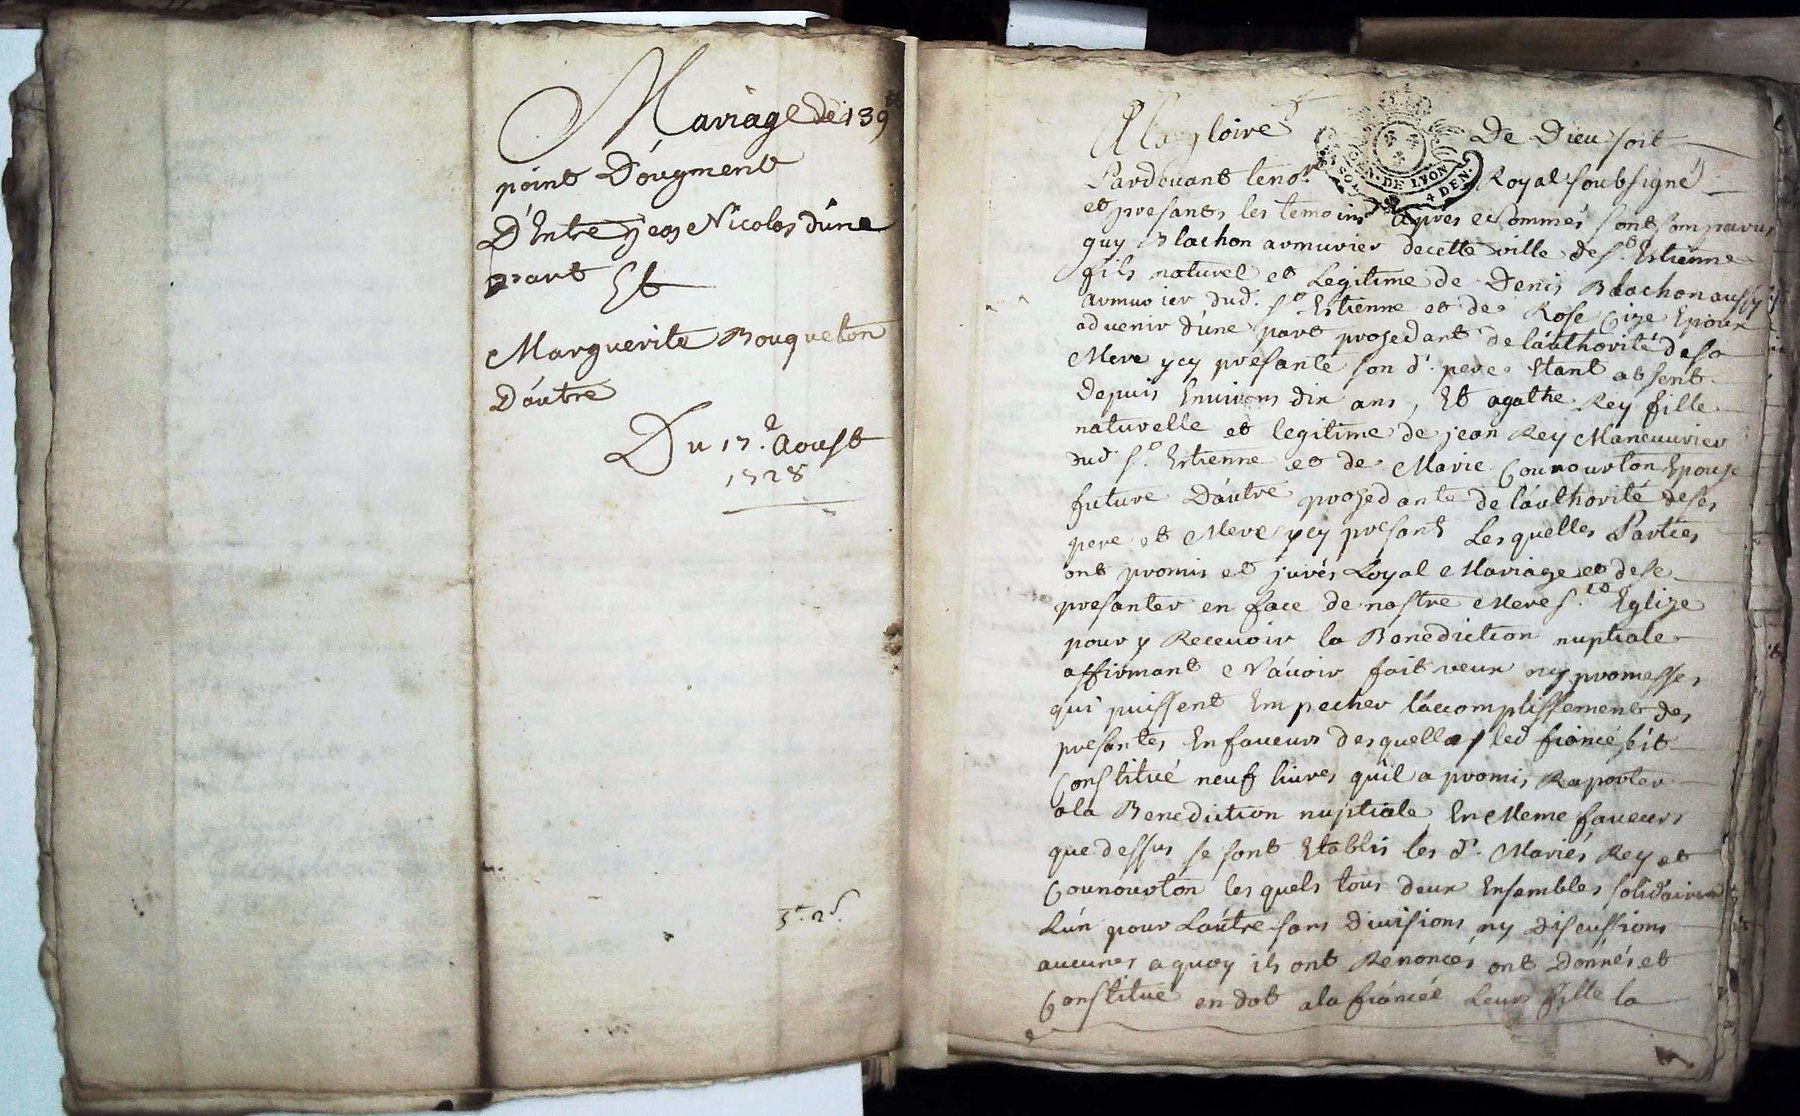 Mariage de 139ᵗᵗ
point D'ougment
D'Entre jean Nicolas d'une
part Et
Marguerite Bouqueton
D'autre
Du 17.ᵉ Aoust
1728
3ᵗ. 2ˢ.
A la gloire De Dieu soit
GEN. DE LYON
4 DEN.
Pardevant le noʳᵉ Royal soubsigné
et presants les temoins apres nommés sont comparus
guy Blachon armurier de cette ville de Sᵗ. Estienne
fils naturel et Legitime de Denis Blachon aussy
armurier dud. Sᵗ. Estienne et de Rose Cize Epoux
advenir d'une part prosedant de l'authorité de sa
Mere ycy presante son d. pere Etant absent
depuis Environs dix ans, Et agathe Rey fille
naturelle et legitime de jean Rey Maneuvrier
dud Sᵗ. Estienne et de Marie Counourton Epouze
future D'autre prosedante de l'authorité de ses
pere et Mere ycy presants Les quelles Parties
ont promis et jurés Loyal Mariage et de se
presanter en face de nostre Mere Sᵗᵉ Eglize
pour y Recevoir la Benediction nuptiale
affirmant N'avoir fait veux ny promesses
qui puissent Empecher l'accomplissement des
presantes En faveurs desquelles led fiancé s'êt
Constitué neuf livres qu'il a promis Raporter
a la Benediction nuptiale En Meme faveurs
que dessus se sont Etablis les d. Mariés Rey et
Counourton les quels tous deux Ensembles solidairemᵗ
L'ún pour L'autre sans divisions ny discussions
aucunes a quoy ils ont Renoncés ont Donnés et
Constitué en dot a la fiancée Leur fille la